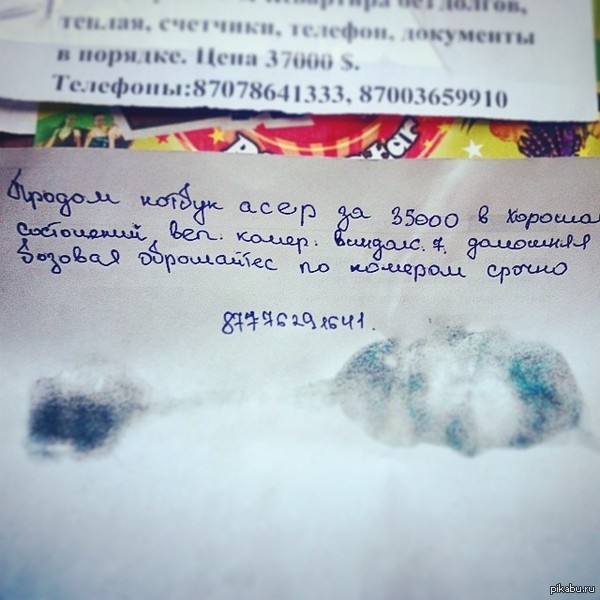 без долгов,
теплая, счетчики, телефон, документы
в порядке. Цена 37000 $.
Телефоны:87078641333, 87003659910
star
Продом нотбук асер за 35000 в хорошам
состоиений веп. камер. виндолс. 7. дамошняя
бозовая оброшайтес по номером срочно
87776291641.
pikabu.ru